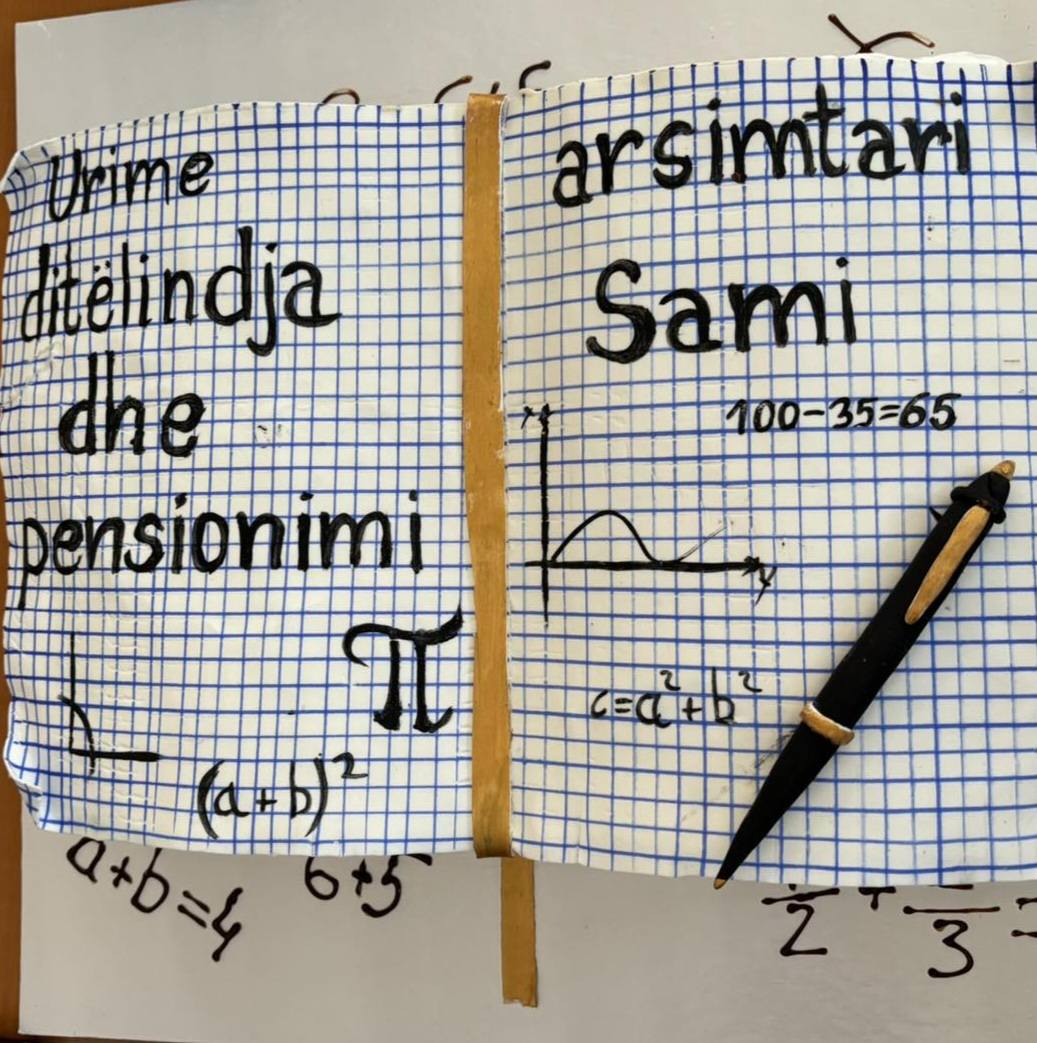 Urime
ditëlindja
dhe
pensionimi
π
(a+b)²
arsimtari
Sami
100-35=65
y
c=a²+b²
a+b=4
6+5
2
3